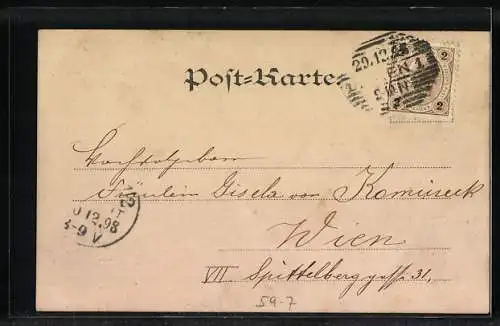 Post-Karte
29.12.98
WIEN 1
2
2
Hochwohlgeboren
Fräulein Gisela von
Wien
VII Spittelberggasse 31.
12.98
8-9 V
59-7